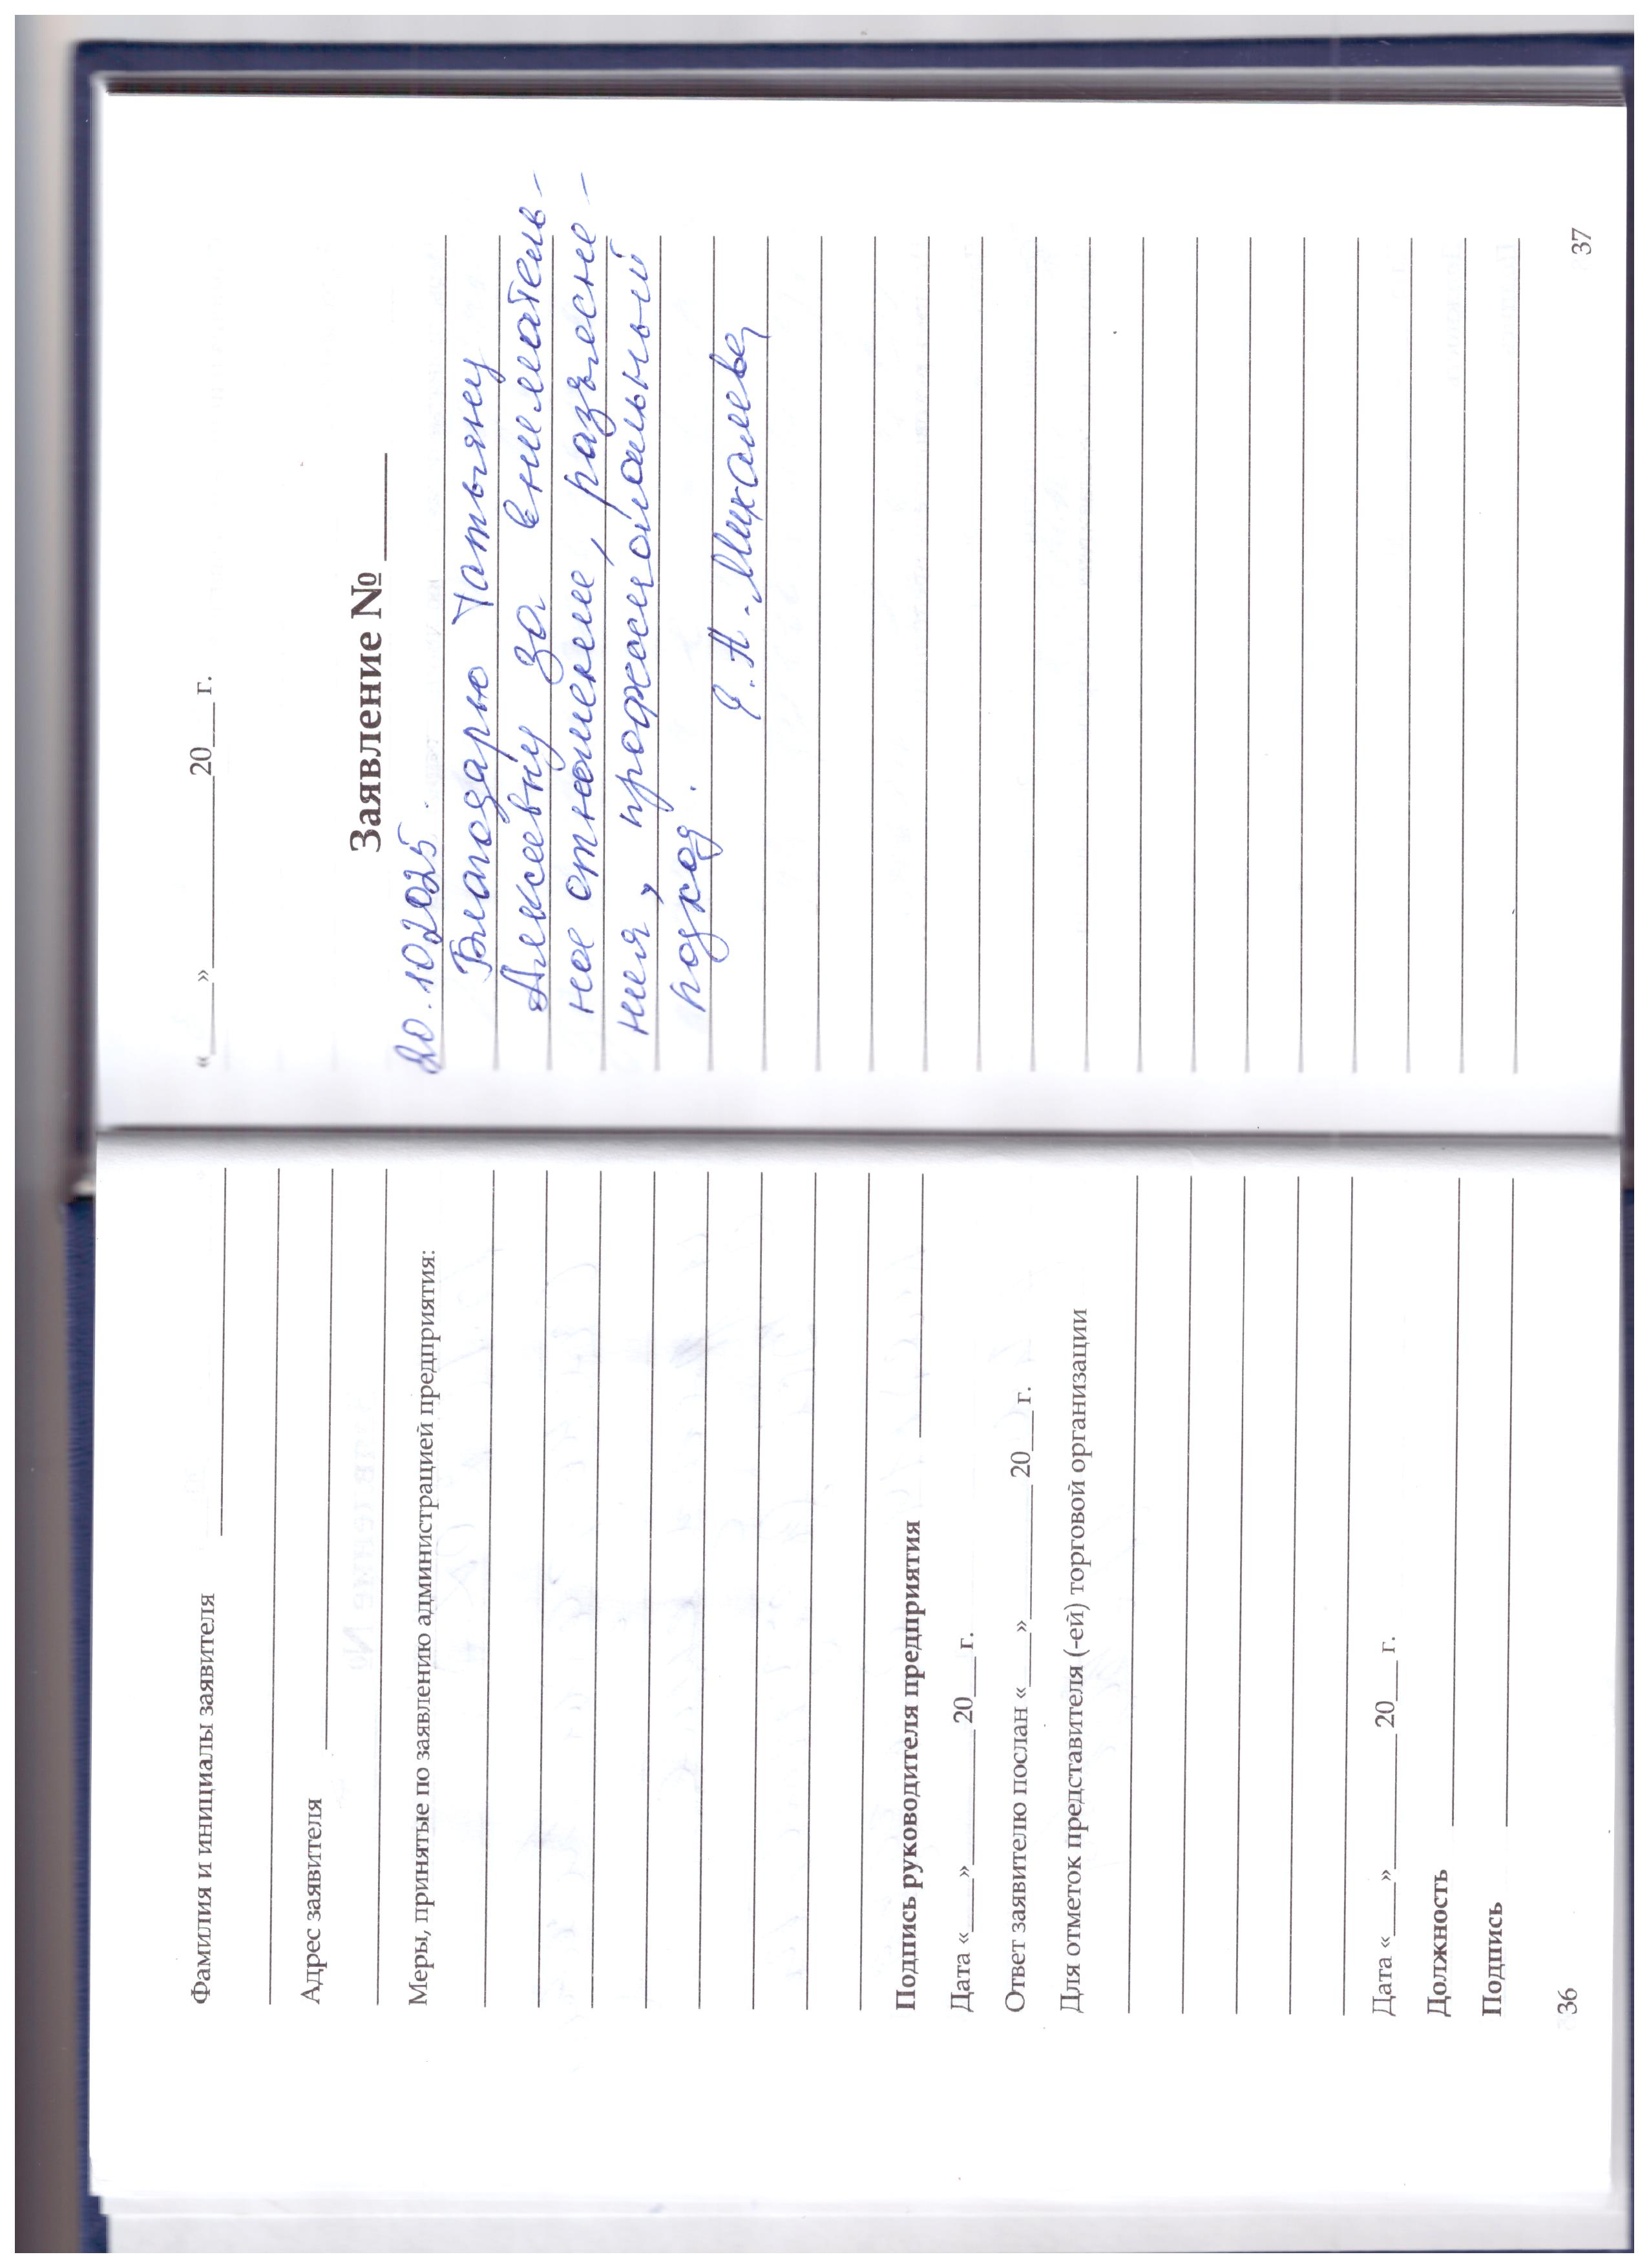 Фамилия и инициалы заявителя
Адрес заявителя
Меры, принятые по заявлению администрацией предприятия:
Подпись руководителя предприятия
Дата «___»__________ 20___г.
Ответ заявителю послан «___»__________ 20___г.
Для отметок представителя (-ей) торговой организации
Дата «___»__________ 20___ г.
Должность
Подпись
36
«___»______________20___ г.
Заявление № ______
20.10.2025.
Благодарю Татьяну
Алексеевну за вниматель-
ное отношение, разъясне-
ния, профессиональный
подход.
А. Михалева
37